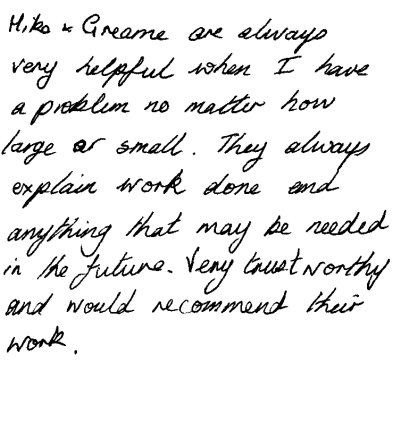 Mike & Greame are always
very helpful when I have
a problem no matter how
large or small. They always
explain work done and
anything that may be needed
in the future. Very trustworthy
and would recommend their
work.